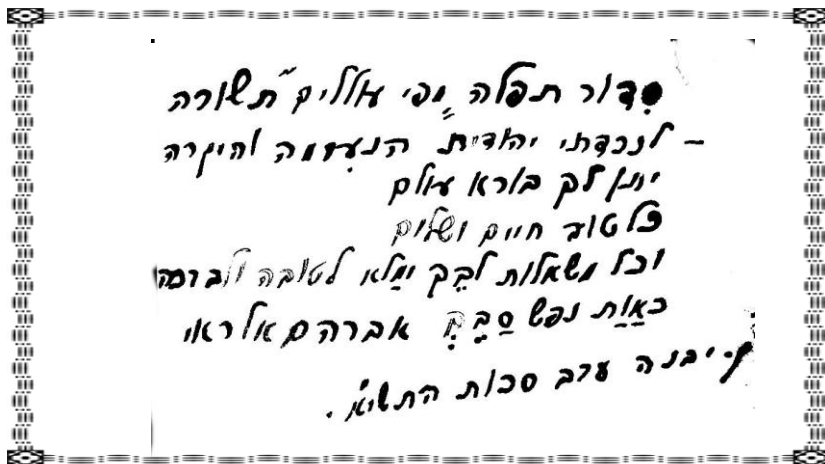 סִדּוּר תפלה „מפי עוללים״ תשורה
לנכדתי יהודית הנעִימה והיקרה –
יתן לך בורא עולם
כל טוב חיים ושלום
וכל משאלות לבֵּך ימַלא לטובה ולברכה
כאַוַת נפש סַבֵּךְ אברהם אלראי
ק. יבנה ערב סכות התשי״א.